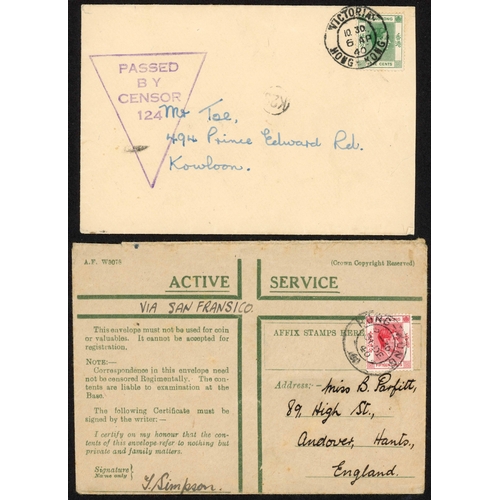 VICTORIA
10.30
6 AP
40
HONG KONG
PASSED
BY
CENSOR
124
Mr Toe,
494 Prince Edward Rd.
Kowloon.
(Crown Copyright Reserved)
ACTIVE SERVICE
VIA SAN FRANSICO.
This envelope must not be used for coin
or valuables. It cannot be accepted for
registration.
NOTE:—
Correspondence in this envelope need
not be censored Regimentally. The con-
tents are liable to examination at the
Base.
The following Certificate must be
signed by the writer:—
I certify on my honour that the con-
tents of this envelope refer to nothing but
private and family matters.
Signature
Name only
T. Simpson.
AFFIX STAMPS HERE
HONG KONG
Address:—
Miss B. Parfitt,
89 High St.,
Andover, Hants,
England.